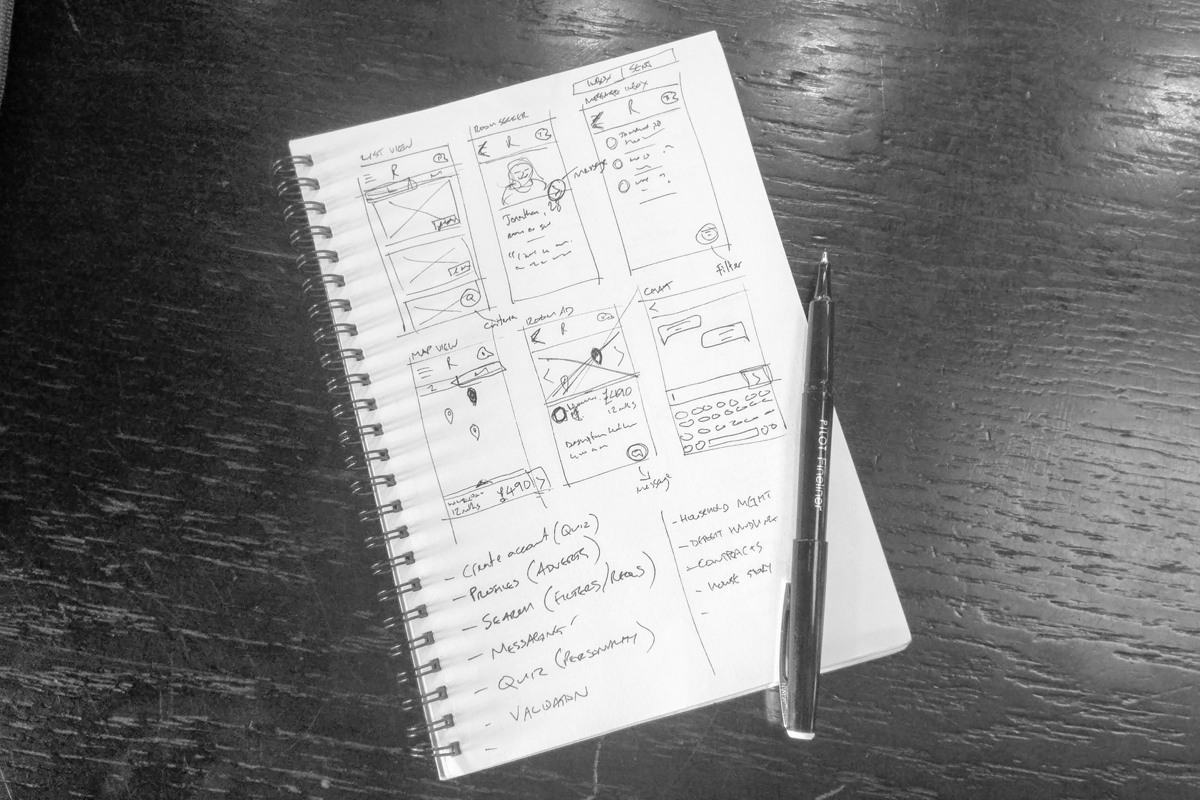 INBOX | SENT
MESSAGE INBOX
R
ROOM SEEKER
R
message
Jonathan, 28
LIST VIEW
R
filter
criteria
CHAT
ROOM AD
R
£490
12 mths
Description
message
MAP VIEW
R
£490
12 mths
- Create account (Quiz)
- PROFILES (ADVERTS)
- SEARCH (FILTERS/RECS)
- MESSAGING
- QUIZ (PERSONALITY)
- VALIDATION
-
- HOUSEHOLD MGMT
- DEPOSIT HANDLING
- CONTRACTS
- HOUSE STORY
-
PILOT Fineliner